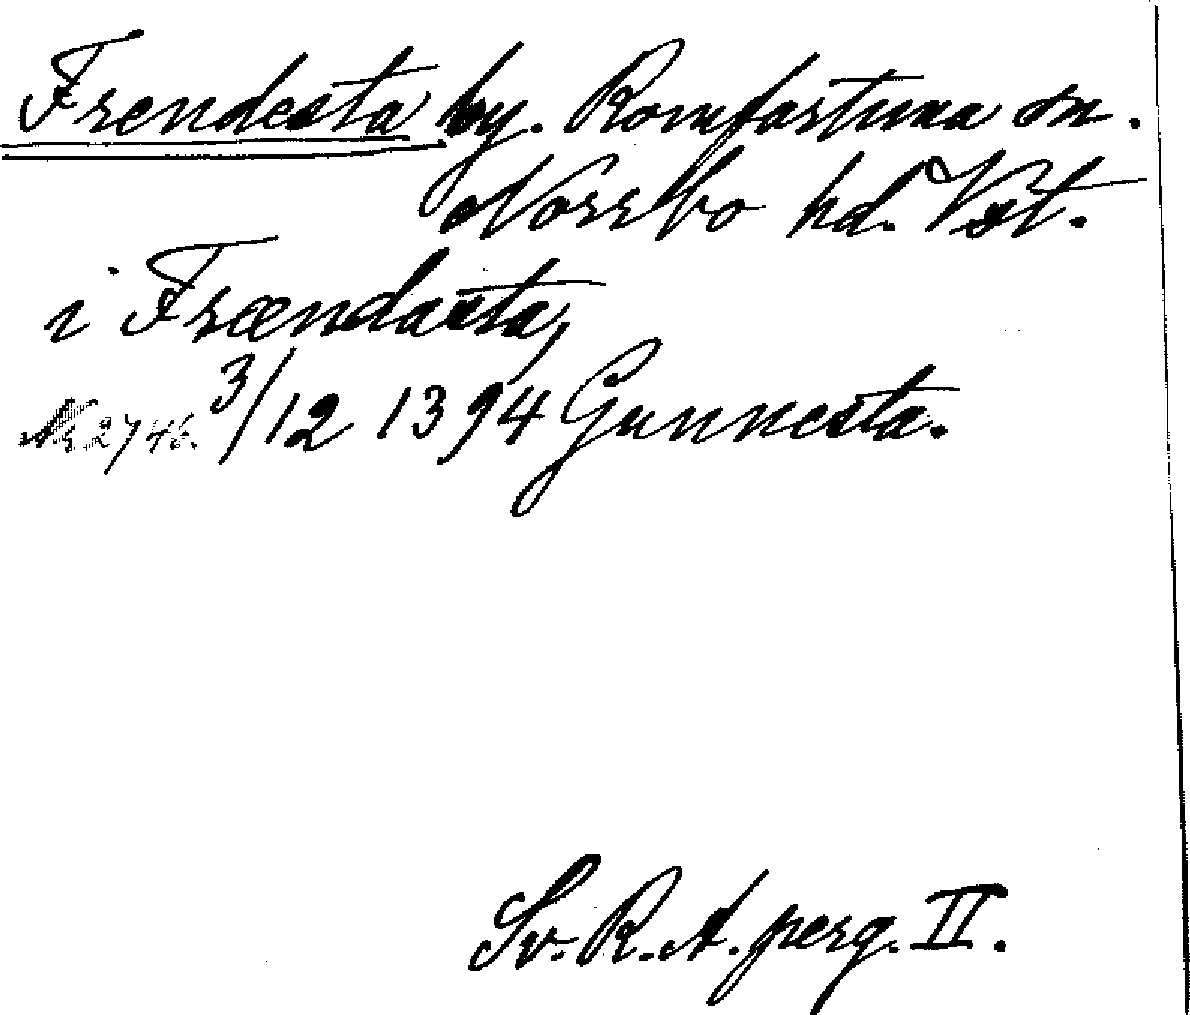 Frendesta by. Romfartuna sn.
Norrbo hd. Vst.
i Frændasta,
Nr 2746. 3/12 1394 Gunnesta.
Sv. R. A. perg. II.